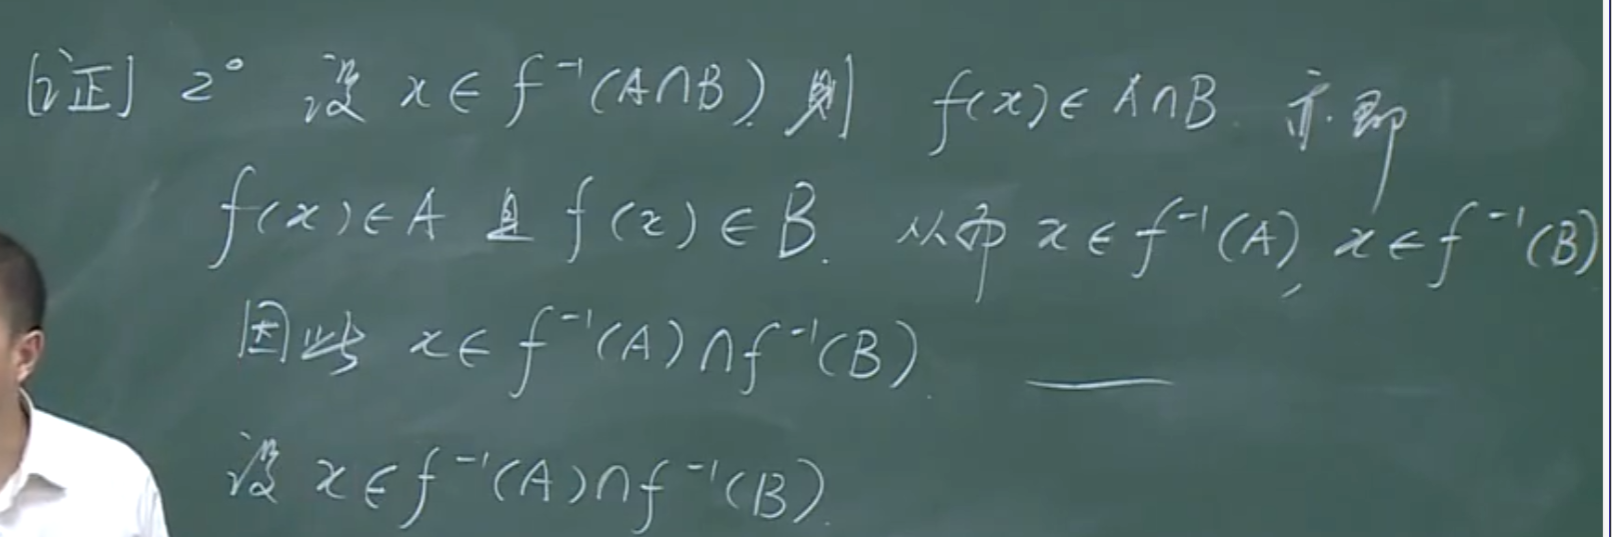 [证] 2° 设 x∈f⁻¹(A∩B), 则 f(x)∈A∩B. 亦即
f(x)∈A 且 f(x)∈B. 从而 x∈f⁻¹(A), x∈f⁻¹(B)
因此 x∈f⁻¹(A)∩f⁻¹(B).
设 x∈f⁻¹(A)∩f⁻¹(B).